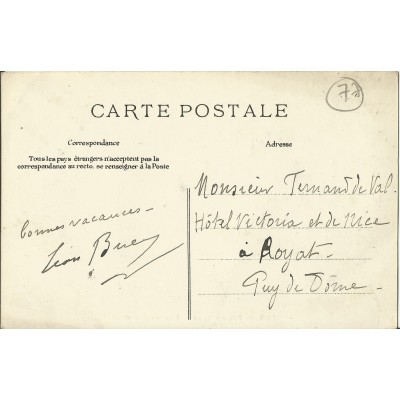 77
CARTE POSTALE
Correspondance
Adresse
Tous les pays étrangers n'acceptent pas la
correspondance au recto, se renseigner à la Poste
bonnes vacances -
Léon
Monsieur Fernand de Val.
Hôtel Victoria et de Nice
à Royat -
Puy de Dôme -